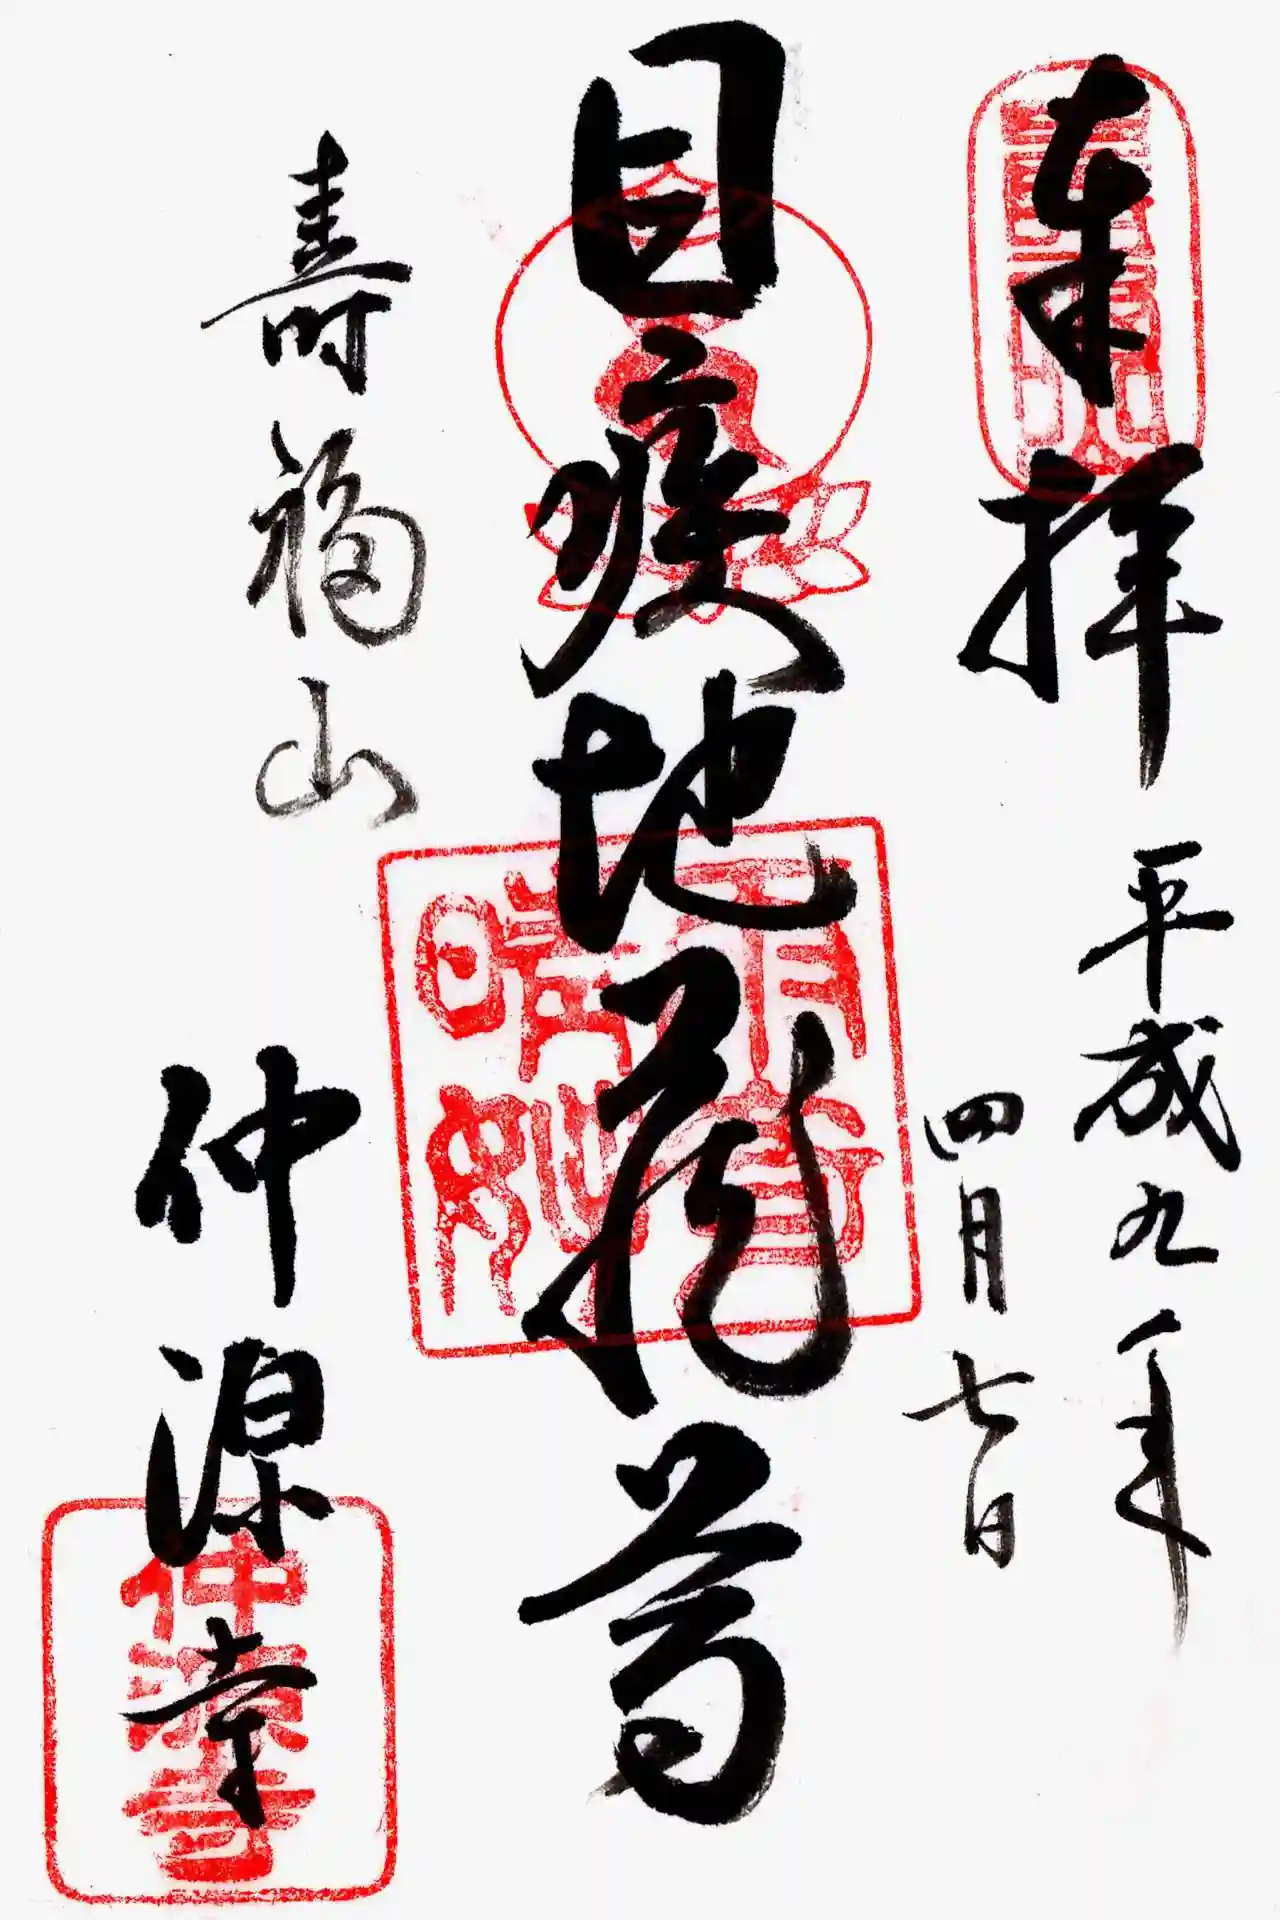 奉拝
平成九年
四月七日
目疾地蔵尊
壽福山
仲源寺
雨奇晴好
仲源寺